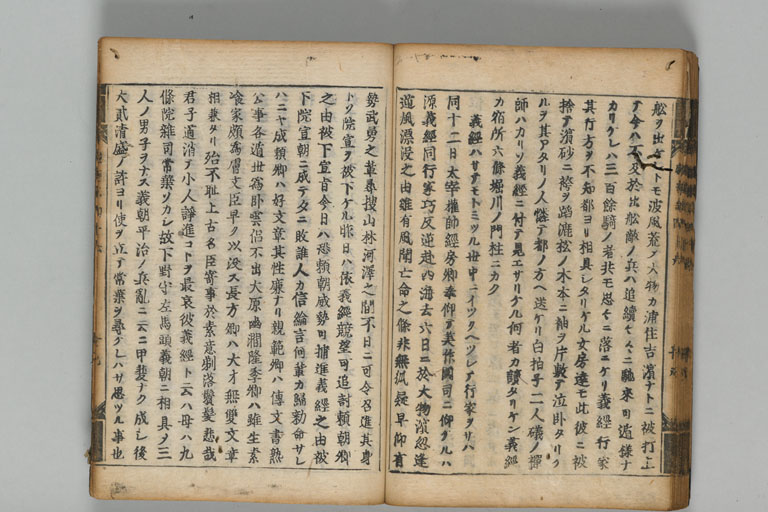 船ヲ出セトモ波風荒テ大物カ浦住吉濱ナトニ被打上
テ今ハ不及於此船敵ノ兵ハ追續
カリケレハ三百餘騎ノ者共モ思々ニ落ニケリ義經行家
其行方ヲ不知都ヨリ相具シタリケル女房達モ此彼ニ被
捨テ濱砂ニ袴ヲ踏漉松ノ木本ニ袖ヲ片敷テ泣臥タリケ
ルヲ其アタリノ人憐テ都ノ方ヘ送ケリ白拍子二人礒ノ禪
師ハカリソ義經ニ付テ見エサリケル何者カ讀タリケン義經
カ宿所六條堀川ノ門柱ニカク
義經ハサテモトミツル世中ニイツクヘツレテ行家ヲサハ
同十二日太宰權師經房卿奉仰テ美作國司ニ仰ケルハ
源義經同行家巧反逆赴西海去六日於大物濱忽逢
逆風漂没之由雖有風聞亡命之條非無狐疑早仰有
勢武勇之輩尋捜山林河澤之間不日ニ可令召進其身
トソ院宣ヲ被下ケル昨日ハ依義經競望可追討頼朝卿
之由被下宣旨今日ハ恐頼朝威勢可捕進義經之由被
下院宣朝ニ成テタニ敗誰人カ信綸言何輩カ歸勅命サレ
ハニヤ成頼卿ハ好文章其性廉ナリ親範卿ハ傳文書熟
公事各遁世為臥雲侶不出大原幽澗隆季卿ハ雖生素
飡家頗為膚文臣早ク以没ス長方卿ハ大才無雙文章
相兼タリ殆不耻上古名臣寄事於素意剃落鬢髪悲哉
君子道消テ小人諍進コトヲ最哀彼義經ト云ハ母ハ九
條院雜司常葉ソカレ故下野守左馬頭義朝ニ相具ソ三
人ノ男子ヲナス義朝平治ノ兵亂ニ云ニ甲斐ナク成シ後
大貳清盛ノ許ヨリ使ヲ立テ常葉ヲ尋ケレハサ思ツル事也